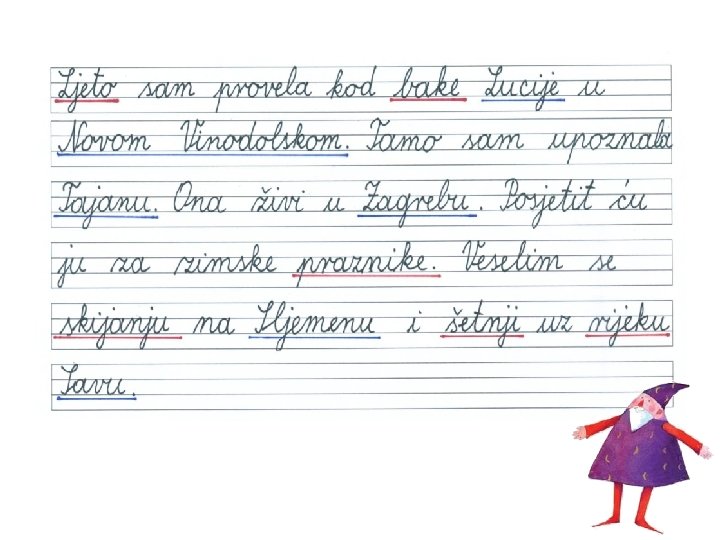 Ljeto sam provela kod bake Lucije u
Novom Vinodolskom. Tamo sam upoznala
Tajanu. Ona živi u Zagrebu. Posjetit ću
ju za zimske praznike. Veselim se
skijanju na Sljemenu i šetnji uz rijeku
Savu.